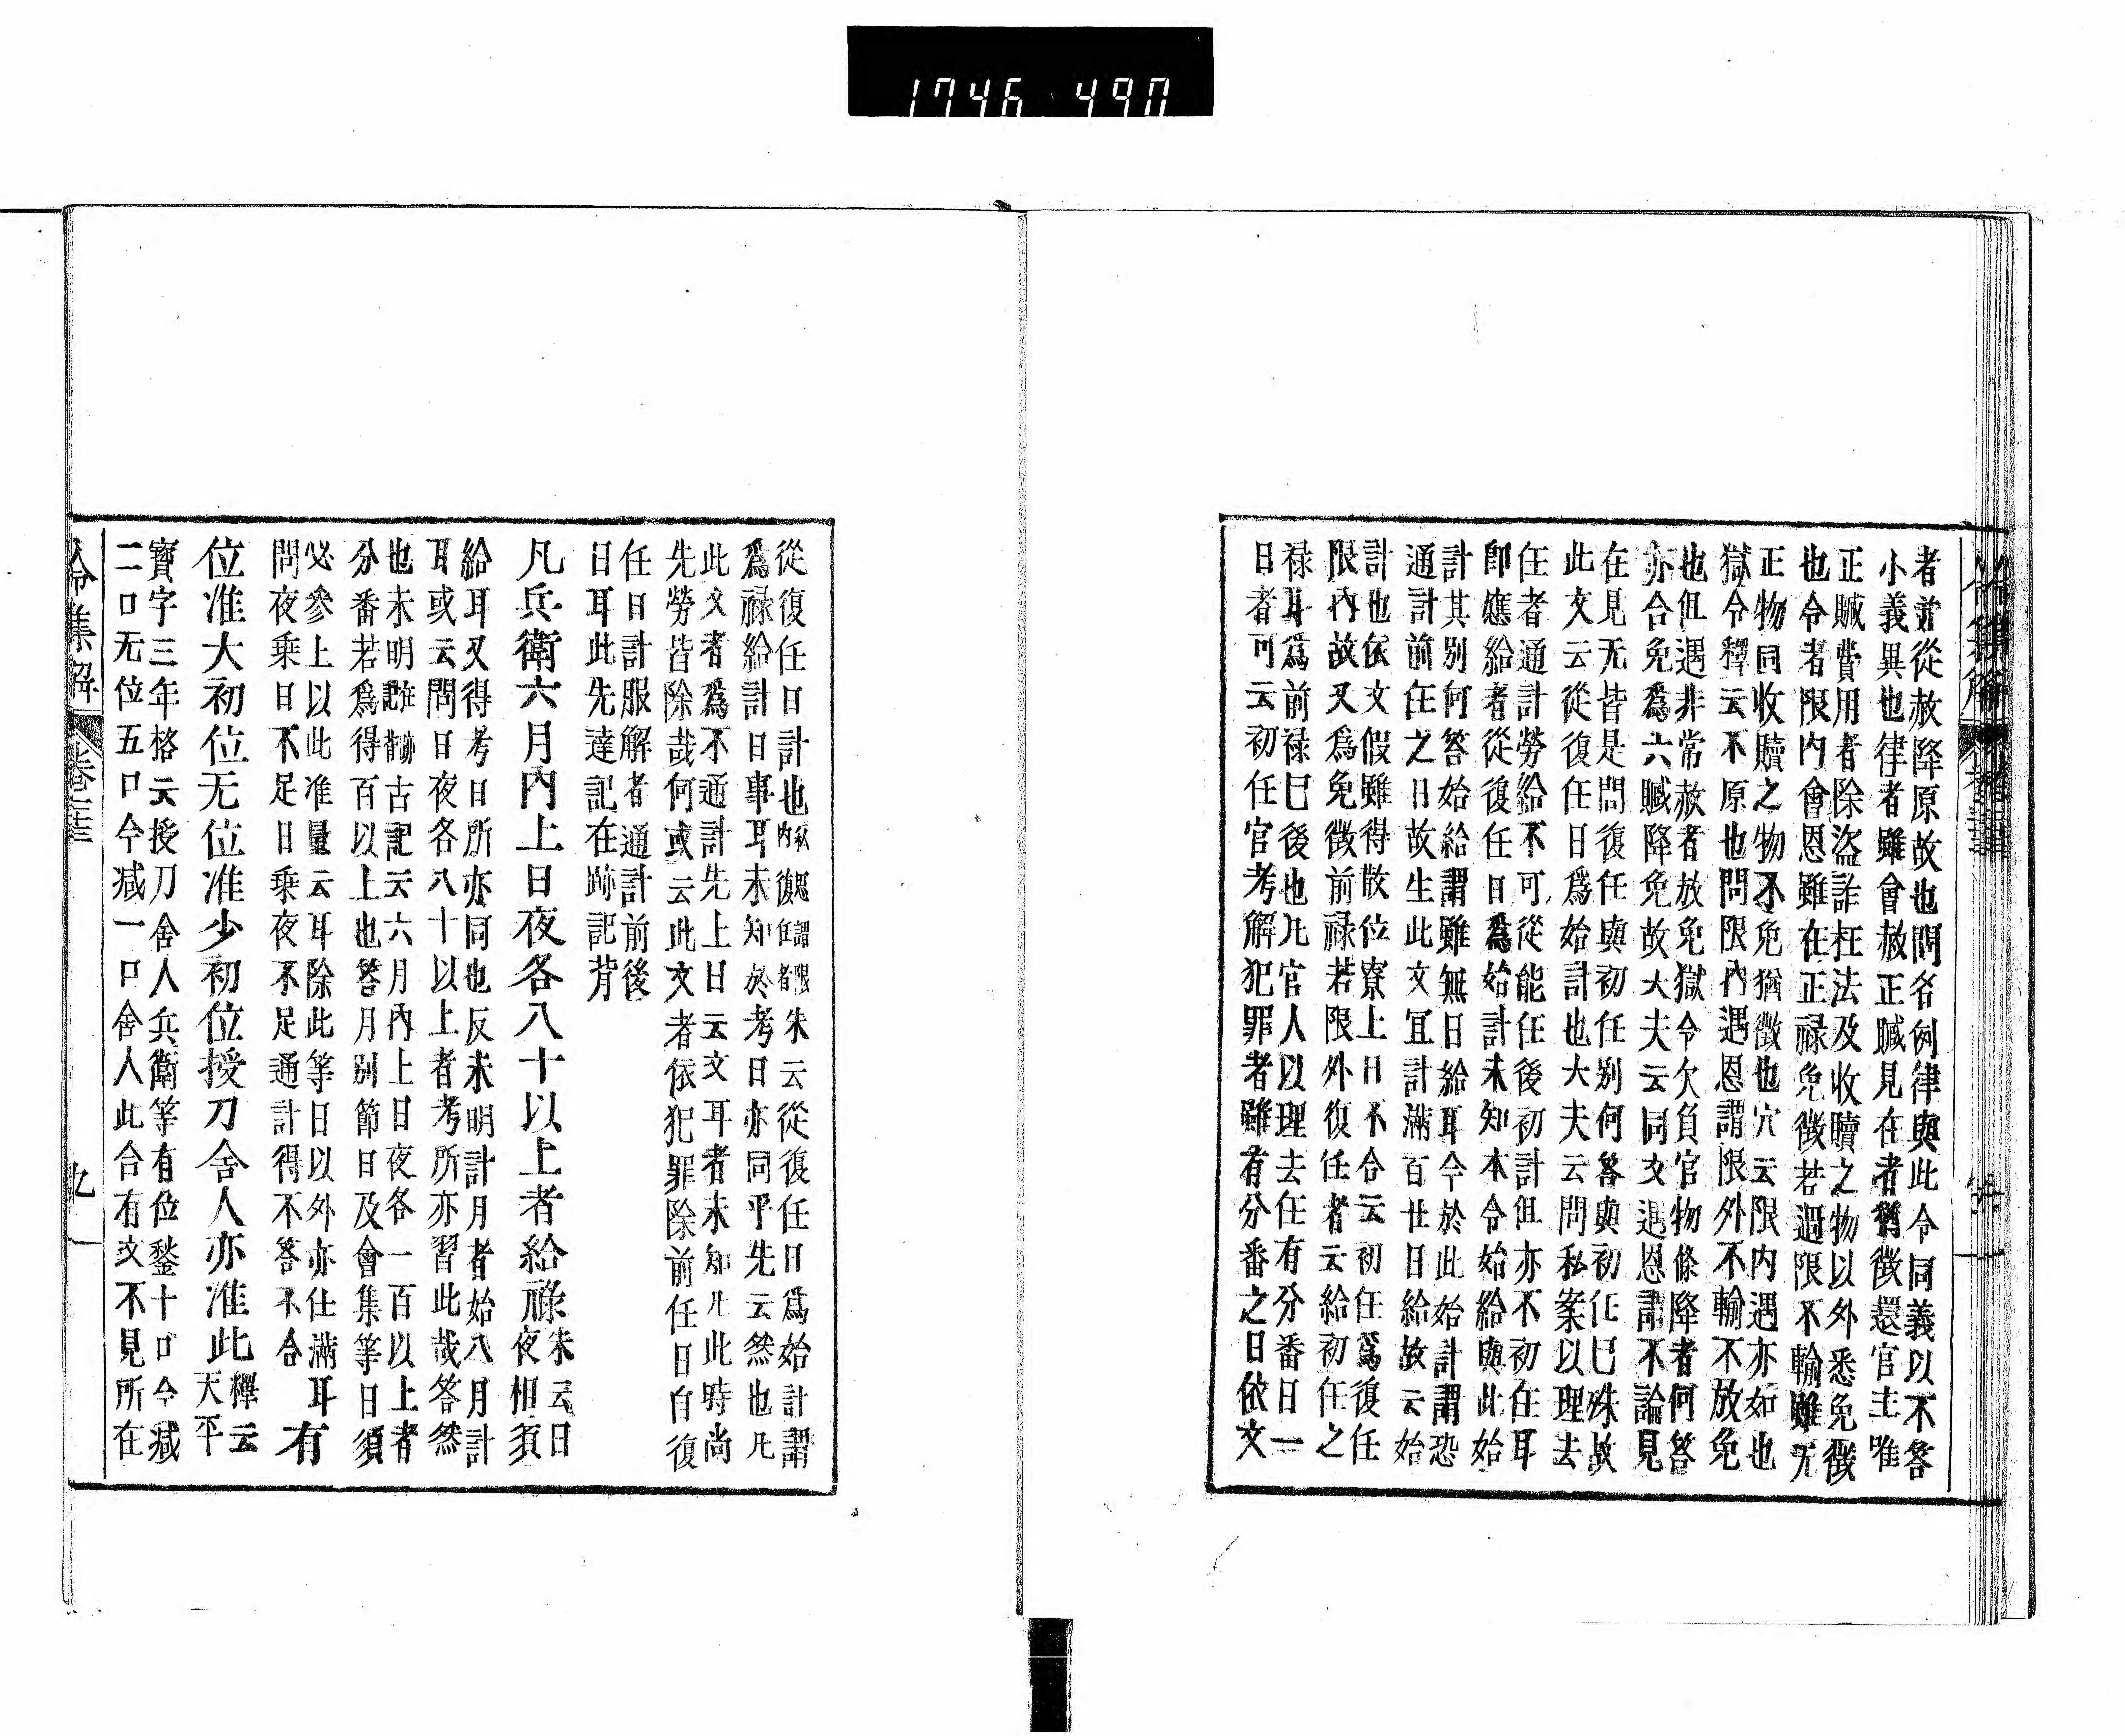 1746 490
者並從赦降原故也問名例律與此令同義以不答
小義異也律者雖會赦正贓見在者猶徵還官主唯
正贓費用者除盜詐枉法及收贖之物以外悉免徵
也令者限内會恩雖在正禄免徵若過限不輸雖无
正物同收贖之物不免猶徵也穴云限内遇亦如也
獄令釋云不原也問限内遇恩謂限外不輸不放免
也但遇非常赦者放免獄令欠負官物條降者何答
亦合免爲六贓降免故大夫云同文遇恩謂不論見
在見无皆是問復任與初任別何答與初任已殊故
此文云從復任日爲始計也大夫云問私案以理去
任者通計勞給不可從能任後初計但亦不初任耳
卽應給者從復任日爲始計未知本令始給與此始
計其別何答始給謂雖無日給耳今於此始計謂恐
通計前任之日故生此文冝計滿百廿日給故云始
計也依文假雖得散位寮上日不合云初任爲復任
限内故又爲免徵前禄若限外復任者云給初任之
禄耳爲前禄已後也凡官人以理去任有分番日一
日者可云初任官考解犯罪者雖有分番之日依文
從復任日計也朱云從復任日爲始計謂
爲禄給計日事耳未知於考日亦同乎先云然也凡
此文者爲不通計先上日云文耳者未知凡此時尚
先勞皆除哉何或云此文者依犯罪除前任日自復
任日計服解者通計前後
日耳此先達記在跡記背
凡兵衛六月内上日夜各八十以上者給祿朱云日
夜相須
給耳又得考日所亦同也反未明計月者始八月計
耳或云問日夜各八十以上者考所亦習此哉答然
也未明古記云六月内上日夜各一百以上者
分番若爲得百以上也答月別節日及會集等日須
必參上以此准量云耳除此等日以外亦仕滿耳
問夜乘日不足日乘夜不足通計得不答不合
有
位准大初位无位准少初位授刀舍人亦准此釋云
天平
寶字三年格云授刀舍人兵衛等有位鍫十口今減
二口无位五口今减一口舍人此合有文不見所在
令集解
九